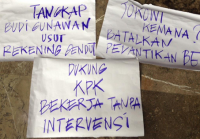 TANGKAP
BUDI GUNAWAN
USUT
REKENING GENDUT
JOKOWI
KEMANA
BATALKAN
PELANTIKAN BE
DUKUNG
KPK
BEKERJA TANPA
INTERVENSI